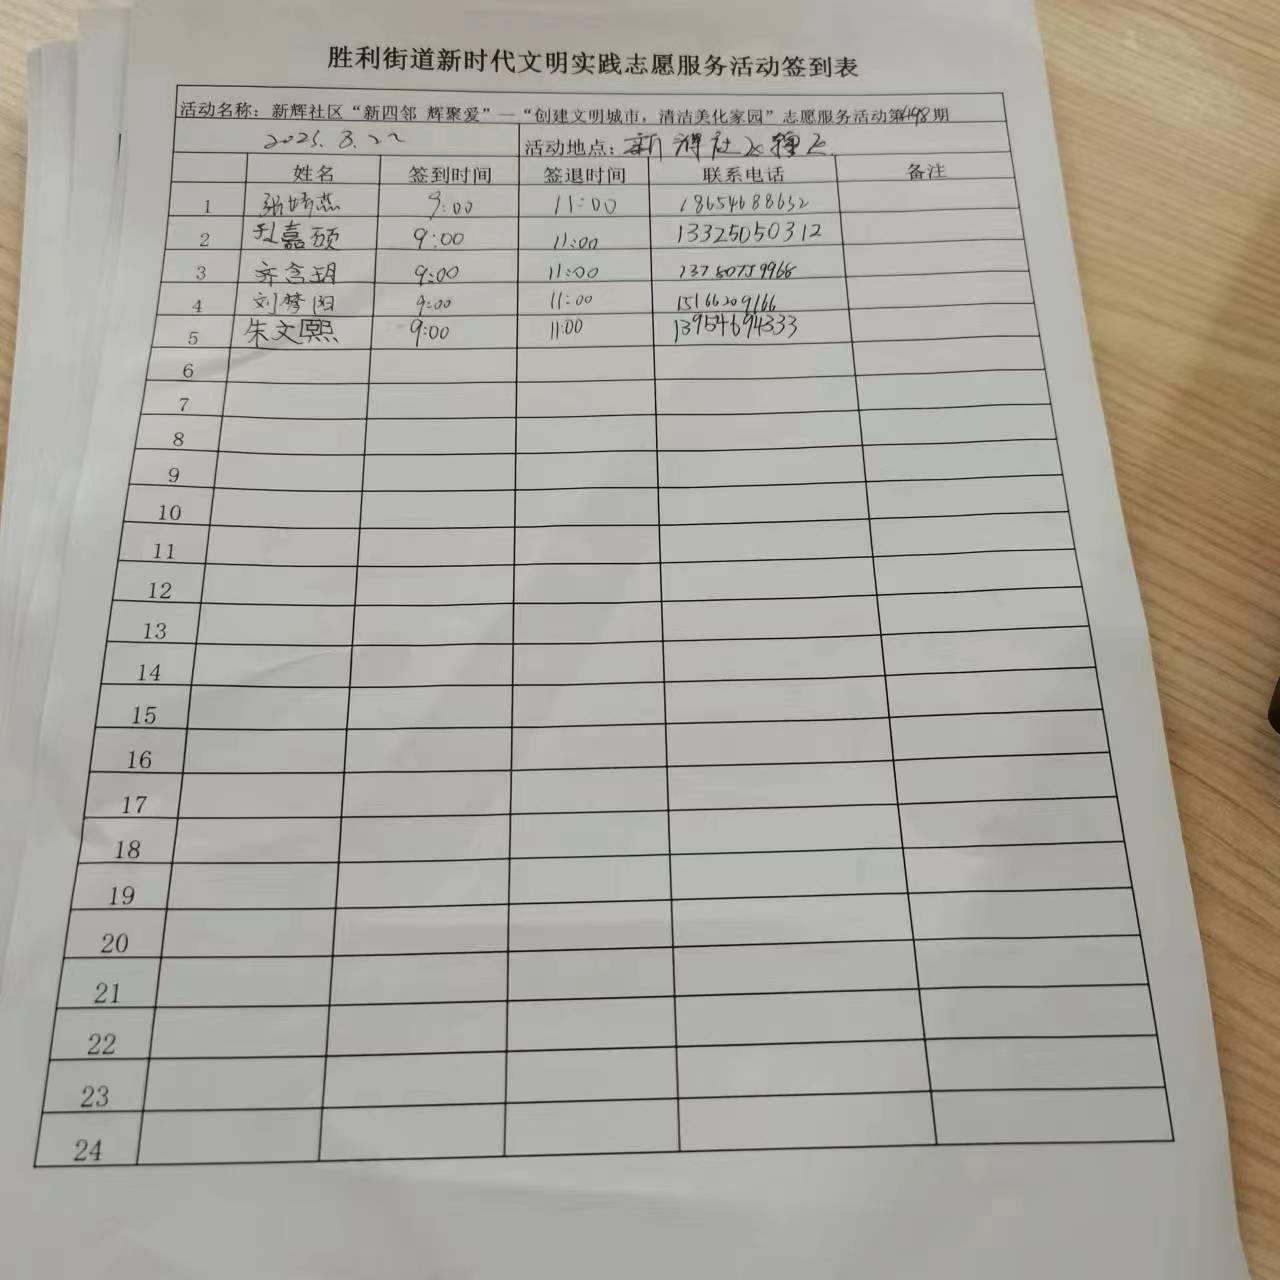 胜利街道新时代文明实践志愿服务活动签到表
活动名称：新辉社区“新四邻 辉聚爱”—“创建文明城市，清洁美化家园”志愿服务活动第498期
2025.3.22 活动地点：新辉社区辖区
姓名 签到时间 签退时间 联系电话 备注
1 张婷燕 9:00 11:00 18654688632
2 嘉硕 9:00 11:00 13325050312
3 齐含玥 9:00 11:00
4 刘梦阳 9:00 11:00 15166209166
5 朱文熙 9:00 11:00 13954694333
6
7
8
9
10
11
12
13
14
15
16
17
18
19
20
21
22
23
24